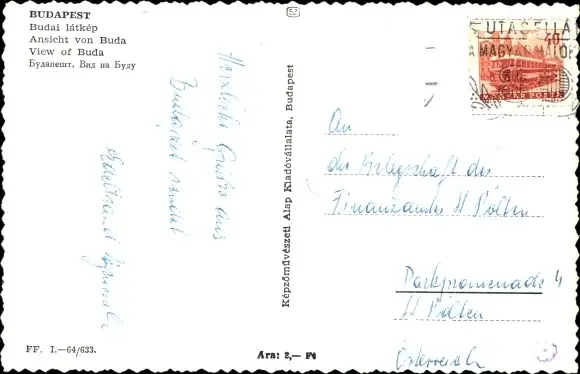 BUDAPEST
Budai látkép
Ansicht von Buda
View of Buda
Будапешт. Вид на Буду
Herzliche Grüße aus
Budapest sendet
Képzőművészeti Alap Kiadóvállalata, Budapest
UTASELLÁ
A MAGYAR
40
MAGYAR POSTA
An
die Belegschaft des
Finanzamtes St Pölten
Parkpromenade 4
St Pölten
Österreich
FF. I.—64/633.
Ára: 2,— Ft